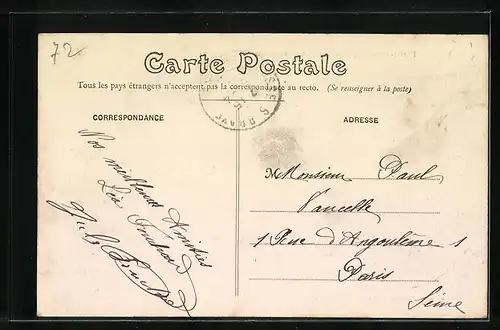 72
Carte Postale
Tous les pays étrangers n'acceptent pas la correspondance au recto. (Se renseigner à la poste)
CORRESPONDANCE
ADRESSE
Nos meilleures Amitiés
Monsieur Paul
1 Rue d'Angoulême 1
Paris
Seine